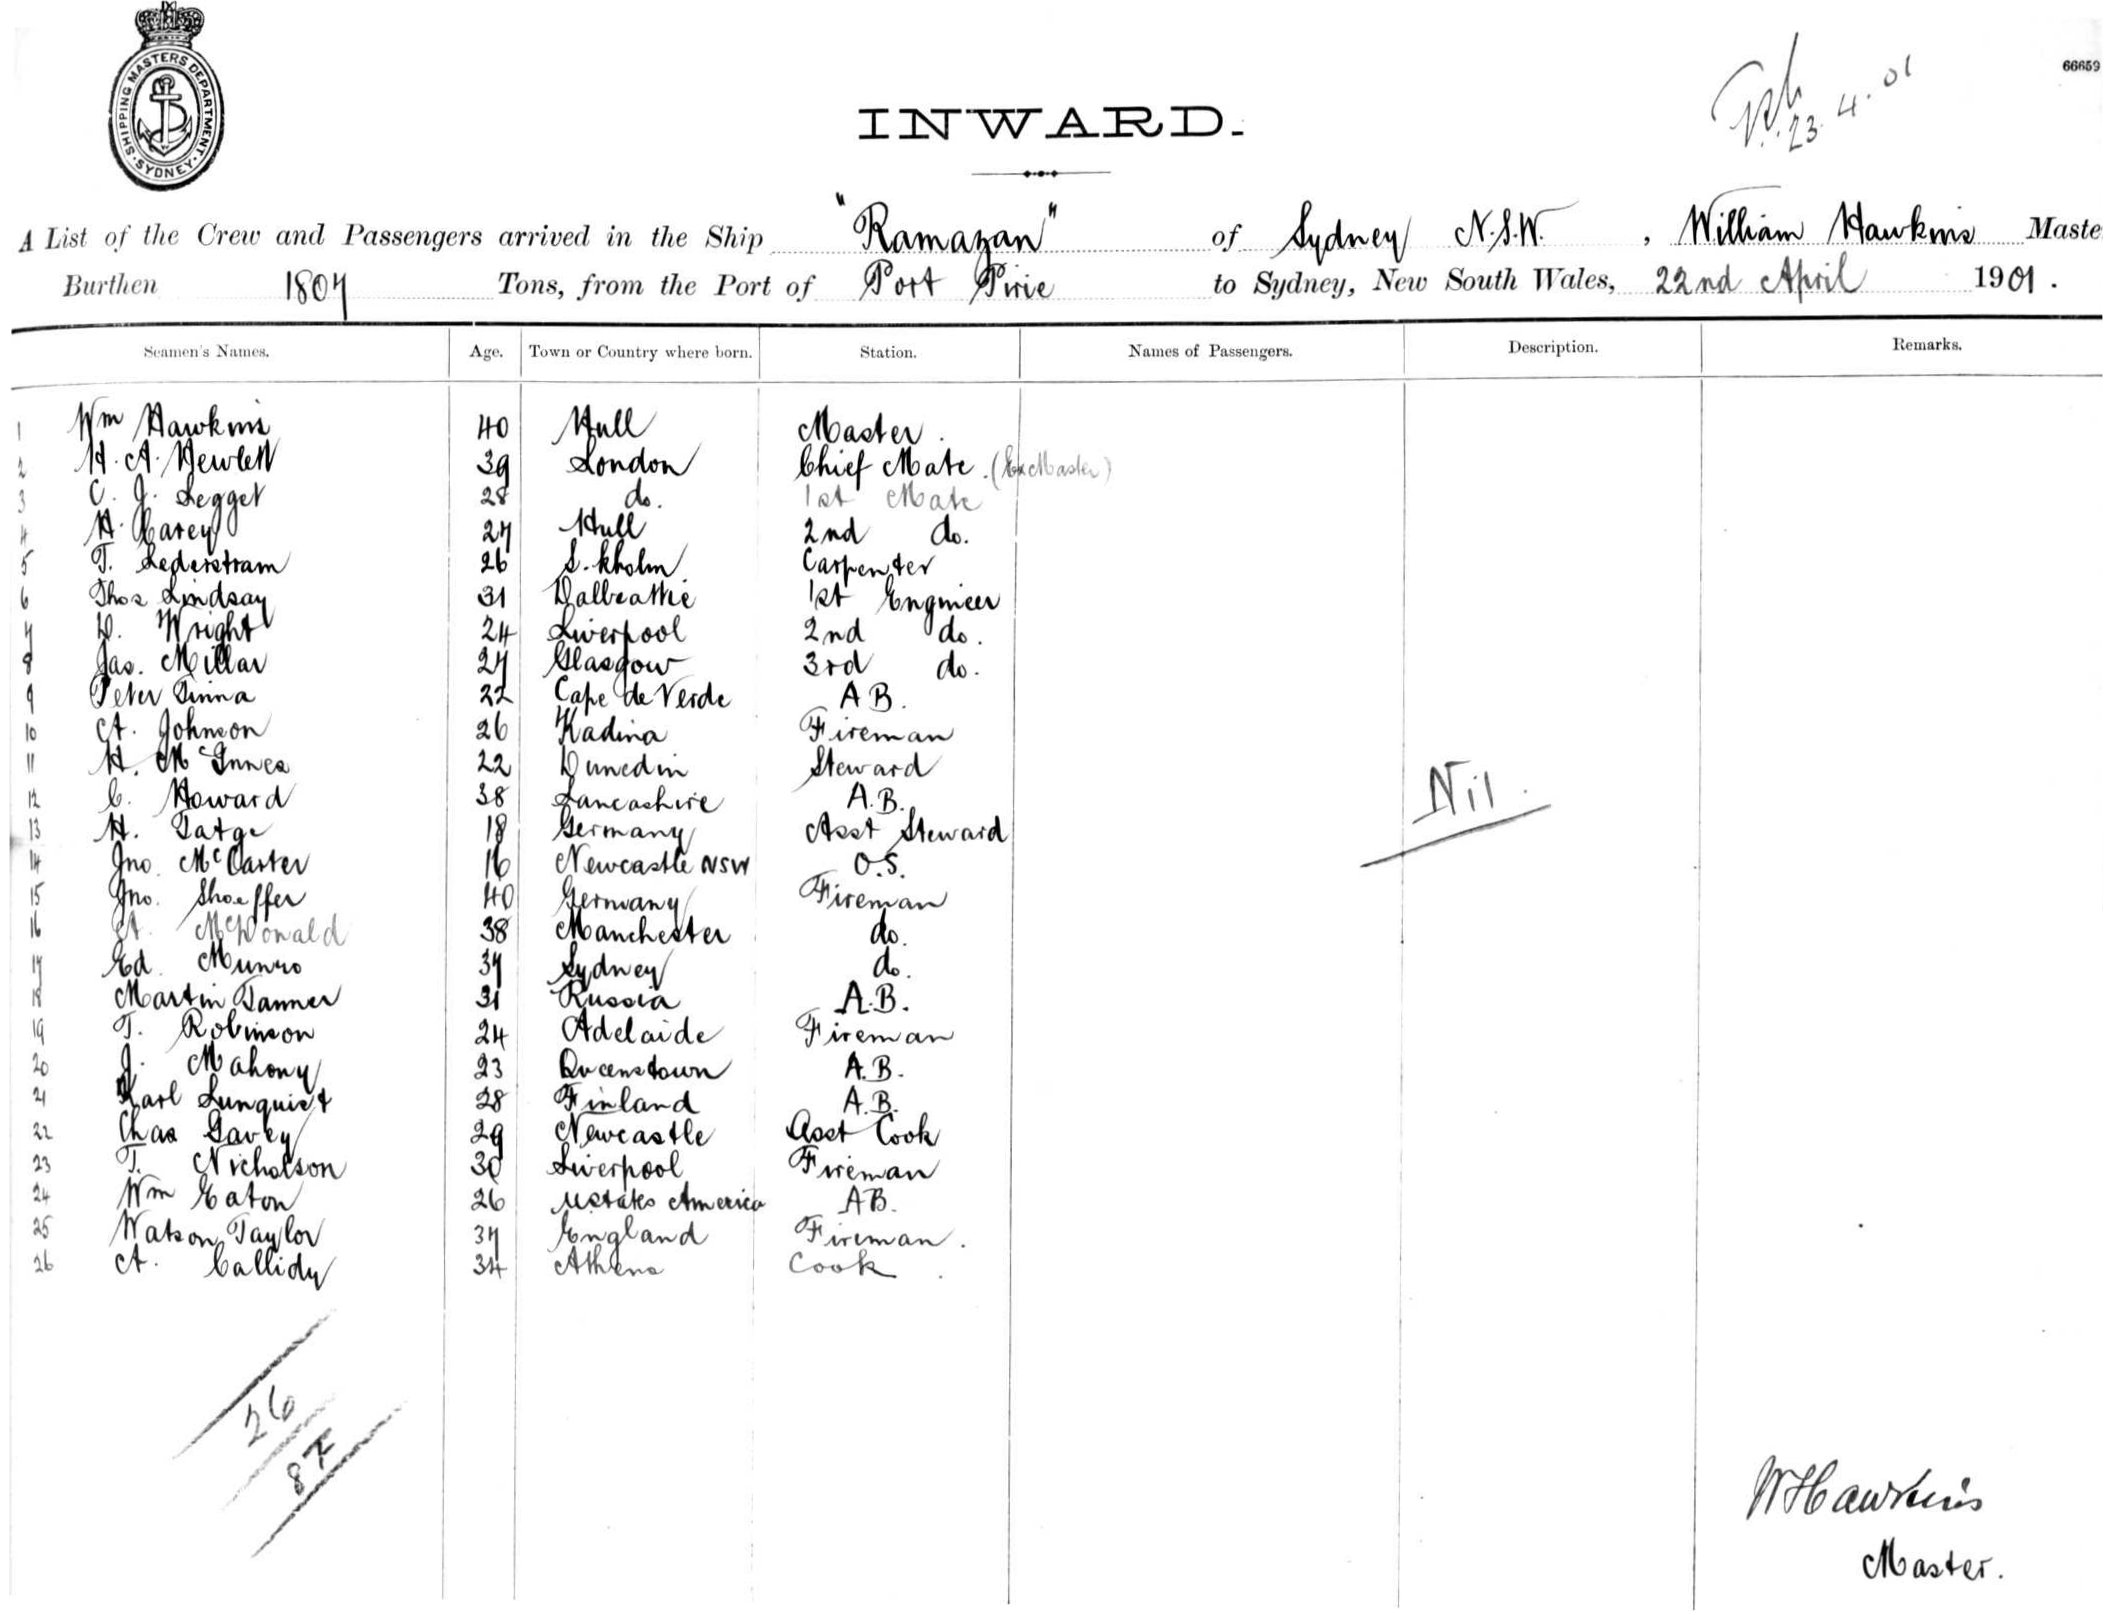 SHIPPING MASTERS DEPARTMENT. SYDNEY.
23.4.01
66659
INWARD.
A List of the Crew and Passengers arrived in the Ship "Ramazan" of Sydney N.S.W. , William Hawkins Maste
Burthen 1807 Tons, from the Port of Port Pirie to Sydney, New South Wales, 22nd April 1901.
Seamen's Names. Age. Town or Country where born. Station. Names of Passengers. Description. Remarks.
1 Wm Hawkins 40 Hull Master.
2 H. A. Hewlett 39 London Chief Mate. (Ex Master)
3 C. J. Legget 28 do. 1st Mate
4 H. Carey 27 Hull 2nd do.
5 T. Sederstram 26 S.kholm Carpenter
6 Thos Lindsay 31 Dalbeattie 1st Engineer
7 D. Wright 24 Liverpool 2nd do.
8 Jas. Millar 27 Glasgow 3rd do.
9 Peter 22 Cape de Verde AB.
10 A. Johnson 26 Kadina Fireman
11 H. McInnes 22 Dunedin Steward
12 C. Howard 38 Lancashire A.B.
Nil.
13 H. Tatge 18 Germany Asst Steward
14 Jno. McCarter 16 Newcastle NSW O.S.
15 Jno. Shoeffer 40 Germany Fireman
16 A. McDonald 38 Manchester do.
17 Ed. Munro 37 Sydney do.
18 Martin Tanner 31 Russia A.B.
19 T. Robinson 24 Adelaide Fireman
20 J. Mahony 23 Queenstown A.B.
21 Karl Lunquist 28 Finland A.B.
22 Chas Gavey 29 Newcastle Asst Cook
23 T. Nicholson 30 Liverpool Fireman
24 Wm Eaton 26 UStates America AB.
25 Watson Taylor 37 England Fireman.
26 A. Callidy 34 Athens Cook
26
8F
WHawkins
Master.